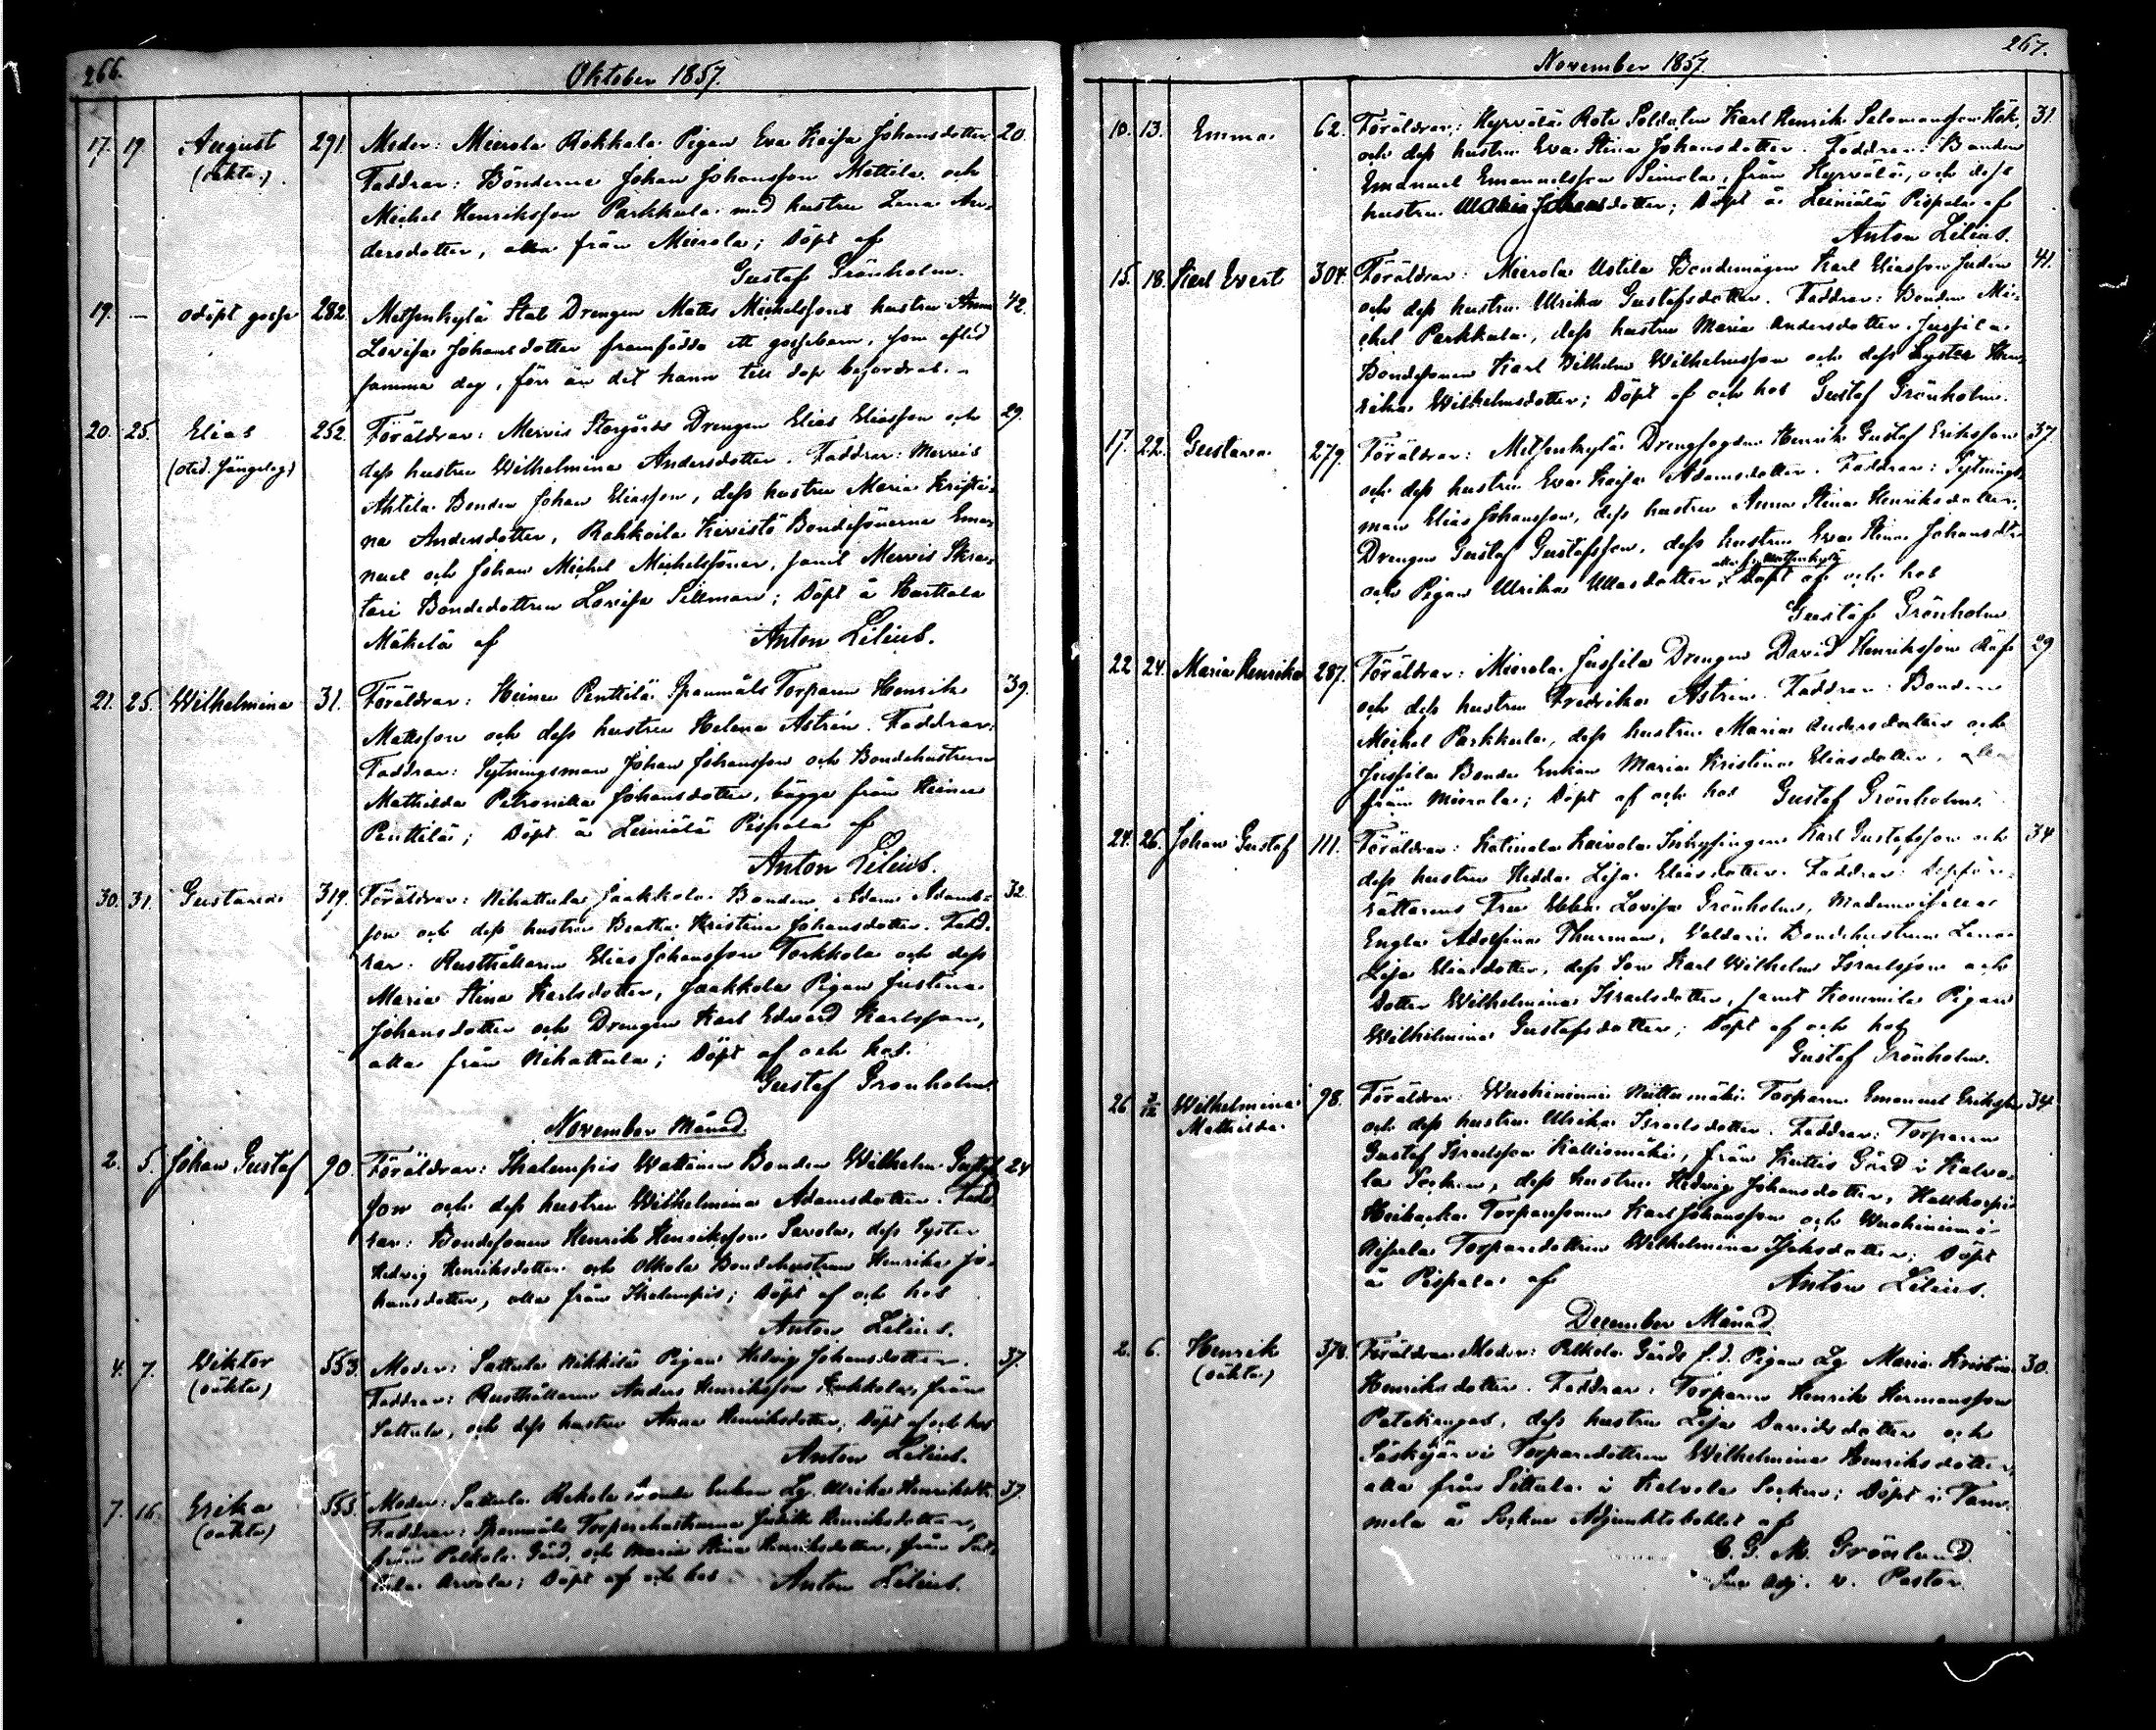 266.
Oktober 1857.
17. 19. August 291. Moder: Mierola Rokkala Pigan Eva Kaisa Johansdotter. 20.
(oäkta.) Faddrar: Bönderne Johan Johansson Mattila och
Michel Henriksson Parkkula med hustru Lena An-
dersdotter, alla från Mierola; Döpt af
Gustaf Grönholm.
19. — odöpt gosse 282. Metsenkylä Stat Drengen Matts Michelsons hustru Anna 42.
Lovisa Johansdotter framfödde ett gossebarn, som afled
samma dag, förr än det hann till dop befordras.
20. 25. Elias 252. Föräldrar: Mervis Storgårds Drengen Elias Eliasson och 29.
dess hustru Wilhelmina Andersdotter. Faddrar: Mervis
Ahtila Bonden Johan Eliasson, dess hustru Maria Kristi-
na Andersdotter, Rahkoila Kirvistö Bondesönerne Ema-
nuel och Johan Michel Michelssöner, samt Mervis Skra-
tari Bondedottren Lovisa Sillman; Döpt å Harttala
Mäkelä af Anton Lilius.
21. 25. Wilhelmina 31. Föräldrar: Heinu Penttilä Spanmåls Torparen Henrik 39.
Mattsson och dess hustru Helena Astrén. Faddrar:
Faddrar: Sytningsman Johan Johansson och Bondehustrun
Mathilda Petronilla Johansdotter, bägge från Heinu
Penttilä; Döpt å Leiniälä Pispala af
Anton Lilius.
30. 31. Gustava 319. Föräldrar: Nihattula Jaakkola Bonden Adam Adams- 32.
son och dess hustru Beatha Kristina Johansdotter. Fad-
rar: Rusthållaren Elias Johansson Torkkola och dess
Maria Stina Karlsdotter, Jaakkola Pigan Justina
Johansdotter och Drengen Karl Edvard Karlsson,
alla från Nihattula; Döpt af och hos
Gustaf Grönholm.
November Månad.
2. 5. Johan Gustaf 90. Föräldrar: Ihalempis Wattinen Bonden Wilhelm Gustaf 24
son och dess hustru Wilhelmina Adamsdotter. Fadd
rar: Bondesonen Henrik Henriksson Savola, dess Syster
Hedvig Henriksdotter och Olkola Bondehustrun Henrika Jo-
hansdotter, alla från Ihalempis; Döpt af och hos
Anton Lilius.
4. 7. Wiktor 553. Moder: Sattula Nikkilä Pigan Hedvig Johansdotter. 37.
(oäkta) Faddrar: Rusthållaren Anders Henriksson Kukkola, från
Sattula, och dess hustru Anna Henriksdotter; Döpt af och hos
Anton Lilius.
7. 16. Erika 555. Moder: Sattula Rekola boende Lg. Ulrika Henriksdtr. 37.
(oäkta) Faddrar: Spanmåls Torparehustrurne Henriksdotter,
från Pelkola Gård, och Maria Stina Henriksdotter, från Sat-
tula Arvola; Döpt af och hos Anton Lilius.
267.
November 1857.
10. 13. Emma 62. Föräldrar: Hyrvälä Rote Soldaten Karl Henrik Salomonsson Hök, 31.
och dess hustru Eva Stina Johansdotter. Faddrar: Bonden
Emanuel Emanuelsson Simola, från Hyrvälä, och dess
hustru Maria Johansdotter; Döpt å Leiniälä Pispala af
Anton Lilius.
15. 18. Karl Evert 304. Föräldrar: Mierola Ustila Bondemågen Karl Eliasson Juden 41.
och dess hustru Ulrika Gustafsdotter. Faddrar: Bonden Mi-
chel Parkkula, dess hustru Maria Andersdotter, Jussila
Bondesonen Karl Wilhelm Wilhelmsson och dess Syster Hen-
rika Wilhelmsdotter; Döpt af och hos Gustaf Grönholm.
17. 22. Gustava 279. Föräldrar: Metsenkylä Drengfogden Henrik Gustaf Eriksson 37
och dess hustru Eva Kaisa Adamsdotter. Faddrar: Sytnings-
man Elias Johansson, dess hustru Anna Stina Henriksdotter,
Drengen Gustaf Gustafsson, dess hustru Eva Stina Johansdtr
och Pigan Ulrika Ullasdotter, alla fr. Metsenkylä; Döpt af och hos
Gustaf Grönholm
22 24. Maria Henrika 287. Föräldrar: Mierola Jussila Drengen David Henriksson 29
och dess hustru Fredrika Astrén. Faddrar: Bonden
Michel Parkkula, dess hustru Maria Andersdotter och
Jussila Bonde Enkan Maria Kristina Eliasdotter, alla
från Mierola; Döpt af och hos Gustaf Grönholm.
24. 26. Johan Gustaf 111. Föräldrar: Katinala Kaivola Inhysingen Karl Gustafsson och 34
dess hustru Hedda Lisa Eliasdotter. Faddrar:
rättarens Fru Ebba Lovisa Grönholm, Mademoisellen
Engla Adolfina Thurman, Bondehustrun Lena
Lisa Eliasdotter, dess Son Karl Wilhelm Israelsson och
Dotter Wilhelmina Israelsdotter, samt Kommila Pigan
Wilhelmina Gustafsdotter; Döpt af och hos
Gustaf Grönholm.
26 2/12 Wilhelmina 98. Föräldrar: Wuohiniemi Niittumäki Torparen Emanuel Eriksson 34.
Mathilda och dess hustru Ulrika Israelsdotter. Faddrar: Torparen
Gustaf Israelsson Kalliomäki, från Kuttis Gård i Kalvo-
la Socken, dess hustru Hedvig Johansdotter,
Torparesonen Karl Johansson och Wuohiniemi
Torparedottren Wilhelmina; Döpt
å Pispala af Anton Lilius.
December Månad.
2. 6. Henrik 378. Föräldrar Moder: Pelkola Gårds f.d. Pigan Lg. Maria Kristina 30.
(oäkta) Henriksdotter. Faddrar: Torparen Henrik Hermansson
Patakangas, dess hustru Lisa Davidsdotter och
Sääskijärvi Torparedottren Wilhelmina Henriksdotter,
alla från Sittala i Kalvola Socken; Döpt i Tam-
mela å Socken Adjunktsbohlet af
C. G. M. Grönlund.
Adj. v. Pastor.